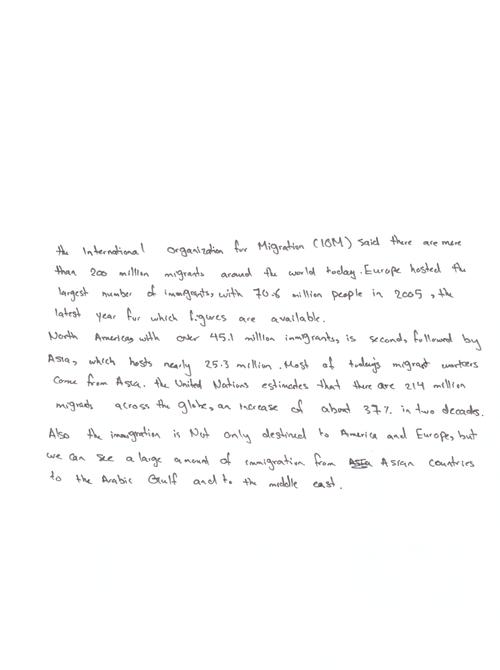 the International organization for Migration (IOM) said there are more
than 200 million migrants around the world today. Europe hosted the
largest number of immigrants, with 70.6 million people in 2005, the
latest year for which figures are available.
North America, with over 45.1 million immigrants, is second, followed by
Asia, which hosts nearly 25.3 million. Most of today's migrant workers
come from Asia. the United Nations estimates that there are 214 million
migrants across the globe, an increase of about 37% in two decades.
Also the immigration is Not only destined to America and Europe, but
we can see a large amount of immigration from Asian countries
to the Arabic Gulf and to the middle east.